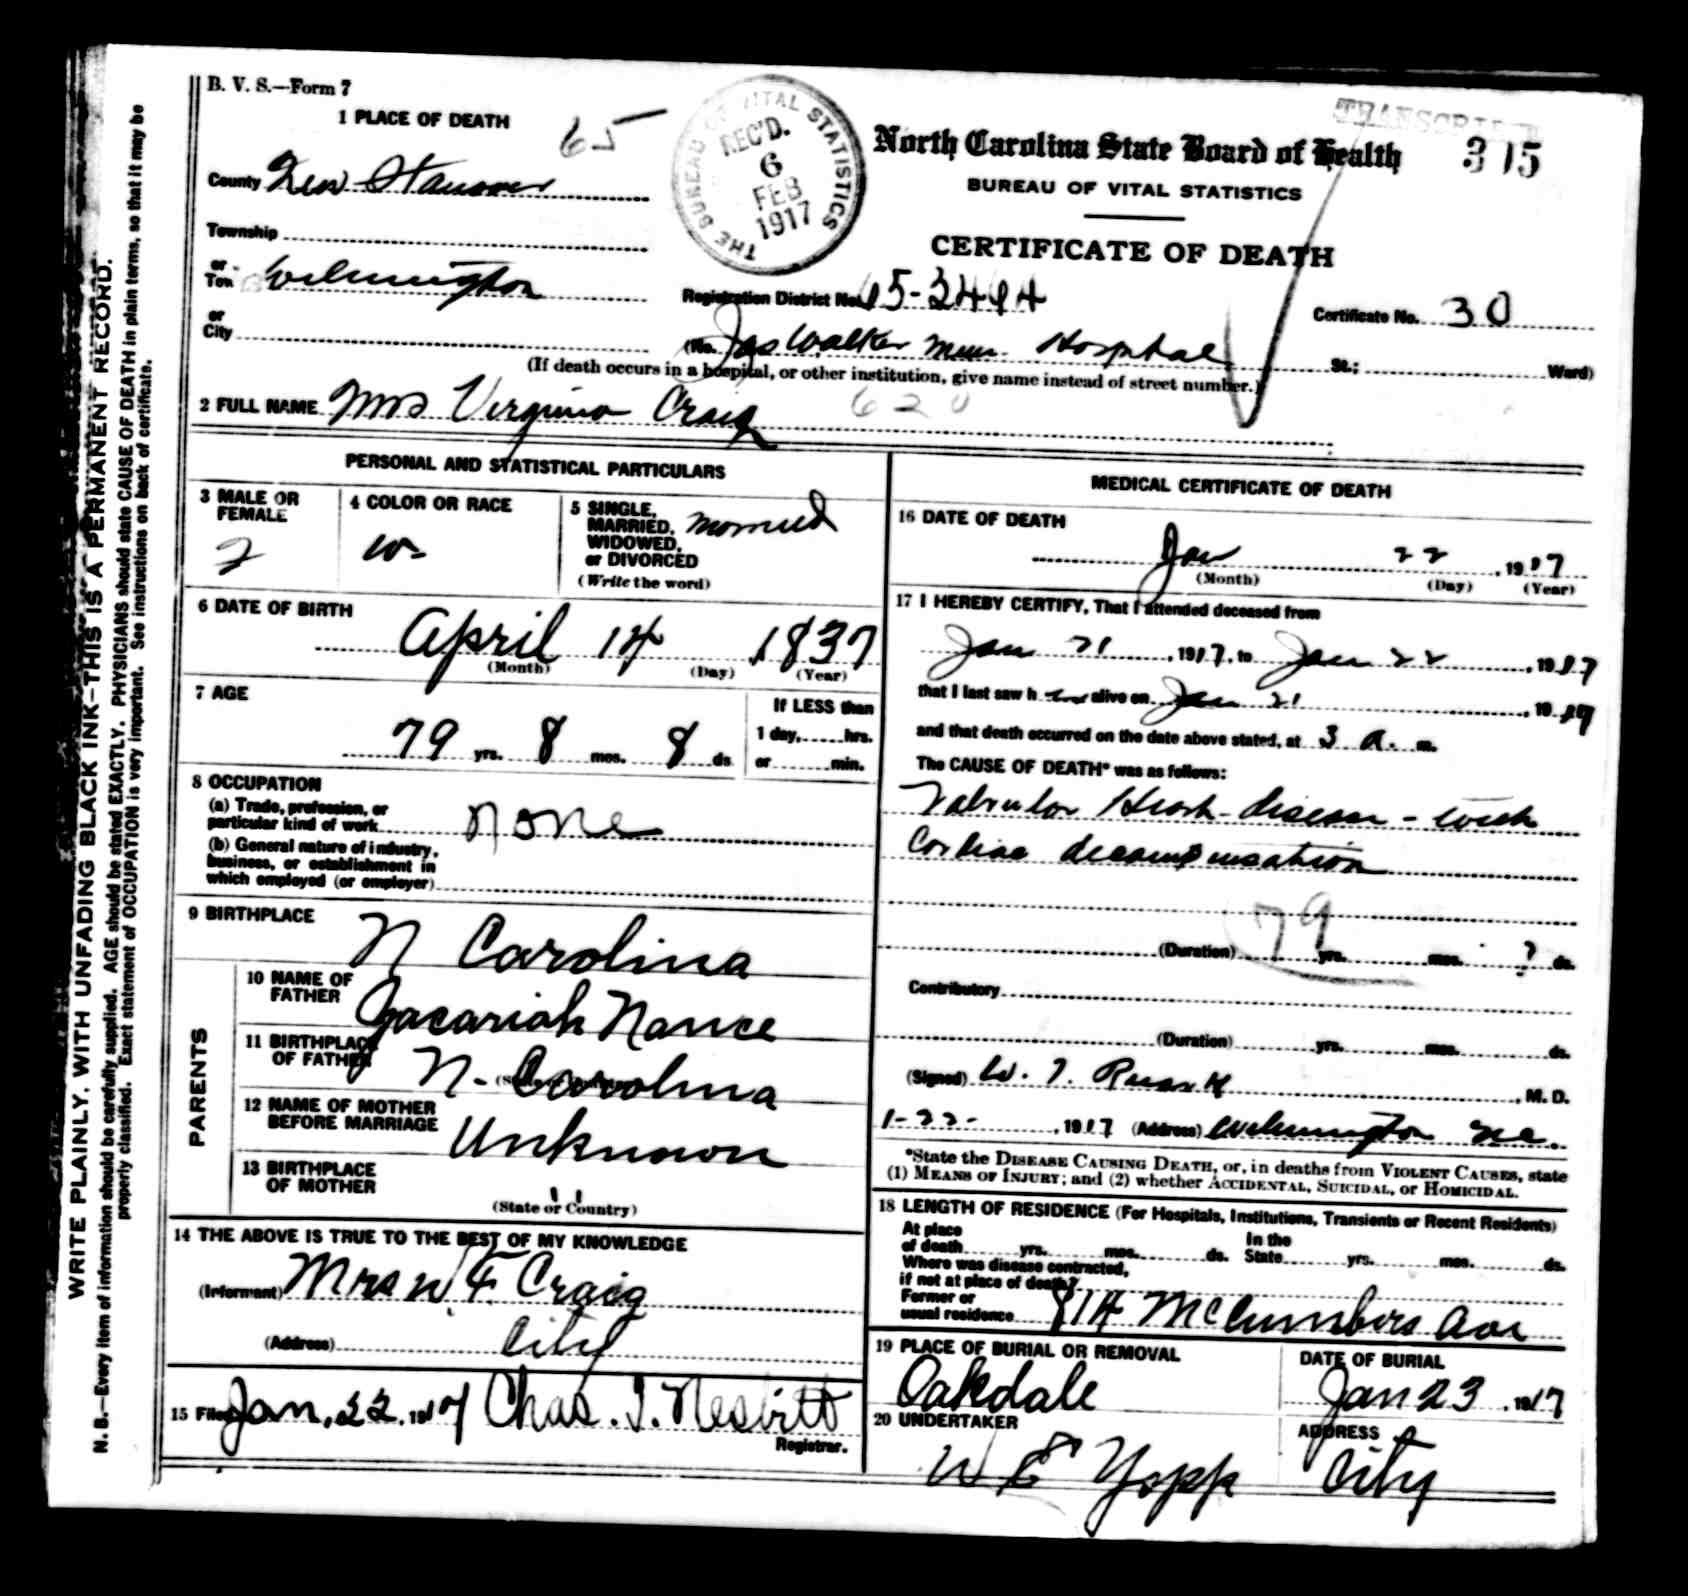 B. V. S.—Form 7
TRANSCRIBED
1 PLACE OF DEATH
65
THE BUREAU OF VITAL STATISTICS
REC'D.
6
FEB
1917
North Carolina State Board of Health 315
BUREAU OF VITAL STATISTICS
CERTIFICATE OF DEATH
County New Hanover
Township
or
Town Wilmington
Registration District No. 65-2494 Certificate No. 30
or
City
(No. Jas Walker Mem. Hospital St.; Ward)
(If death occurs in a hospital, or other institution, give name instead of street number.)
2 FULL NAME Mrs Virginia Craig 620
PERSONAL AND STATISTICAL PARTICULARS
3 MALE OR FEMALE
F
4 COLOR OR RACE
W
5 SINGLE, MARRIED, WIDOWED, or DIVORCED
(Write the word)
Married
6 DATE OF BIRTH
April 14 1837
(Month) (Day) (Year)
7 AGE
79 yrs. 8 mos. 8 ds.
If LESS than
1 day, hrs.
or min.
8 OCCUPATION
(a) Trade, profession, or
particular kind of work None
(b) General nature of industry,
business, or establishment in
which employed (or employer)
9 BIRTHPLACE
N Carolina
PARENTS
10 NAME OF FATHER
Zacariah Nance
11 BIRTHPLACE OF FATHER
N. Carolina
12 NAME OF MOTHER BEFORE MARRIAGE
Unknown
13 BIRTHPLACE OF MOTHER
(State or Country)
" "
14 THE ABOVE IS TRUE TO THE BEST OF MY KNOWLEDGE
(Informant) Mrs W F Craig
(Address) City
15 Filed Jan. 22. 1917 Chas. T. Nesbitt
Registrar.
MEDICAL CERTIFICATE OF DEATH
16 DATE OF DEATH
Jan 22, 1917
(Month) (Day) (Year)
17 I HEREBY CERTIFY, That I attended deceased from
Jan 21, 1917, to Jan 22, 1917
that I last saw her alive on Jan 21, 1917
and that death occurred on the date above stated, at 3 a. m.
The CAUSE OF DEATH* was as follows:
Valvular Heart disease - with
Cardiac decompensation
79
(Duration) yrs. mos. ? ds.
Contributory
(Duration) yrs. mos. ds.
(Signed) W. T. , M. D.
1-22-, 1917 (Address) Wilmington N.C.
*State the DISEASE CAUSING DEATH, or, in deaths from VIOLENT CAUSES, state
(1) MEANS OF INJURY; and (2) whether ACCIDENTAL, SUICIDAL, or HOMICIDAL.
18 LENGTH OF RESIDENCE (For Hospitals, Institutions, Transients or Recent Residents)
At place
of death yrs. mos. ds. In the State yrs. mos. ds.
Where was disease contracted,
if not at place of death?
Former or
usual residence 814 McCumbers Ave
19 PLACE OF BURIAL OR REMOVAL
Oakdale
DATE OF BURIAL
Jan 23, 1917
20 UNDERTAKER
W E Yopp
ADDRESS
City
WRITE PLAINLY, WITH UNFADING BLACK INK—THIS IS A PERMANENT RECORD.
N. B.—Every item of information should be carefully supplied. AGE should be stated EXACTLY. PHYSICIANS should state CAUSE OF DEATH in plain terms, so that it may be
properly classified. Exact statement of OCCUPATION is very important. See instructions on back of certificate.